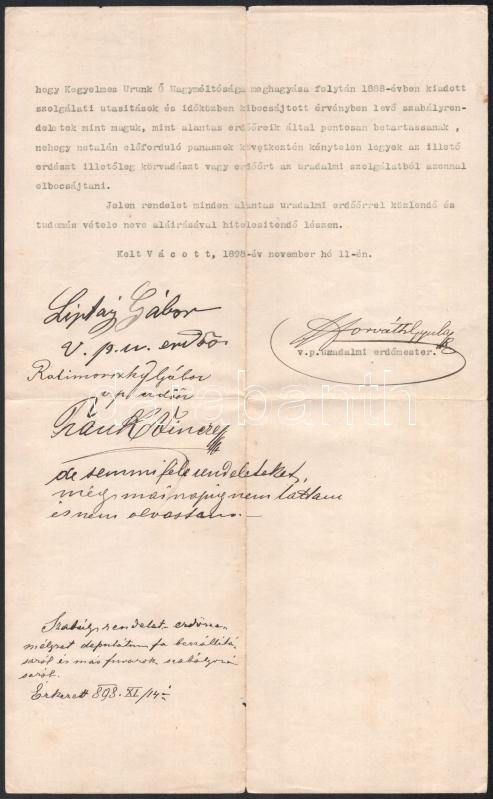 hogy Kegyelmes Urunk Ő Nagyméltósága meghagyása folytán 1888-évben kiadott
szolgálati utasitások és időközben kibocsájtott érvényben levő szabályren-
deletek mint maguk, mint alantas erdőőreik által pontosan betartassanak ,
nehogy netalán előforduló panaszok következtén kénytelen legyek az illető
erdészt illetőleg körvadászt vagy erdőőrt az uradalmi szolgálatból azonnal
elbocsájtani.
Jelen rendelet minden alantas uradalmi erdőőrrel közlendő és
tudomás vétele neve aláirásával hitelesitendő lészen.
Kelt V á c o t t, 1898-év november hó 11-én.
Liptay Gábor
v. p. u. erdőő
Horváth Gyula
v.p.uradalmi erdőmester.
Gábor
v. p. erdőőr
Vincze
de semmiféle rendeleteket,
még mái napig nem láttam
és nem olvastam. —
Szabályrendelet
deputátum fa beszállitá-
sáról és más fuvarok szabályozá-
sáról.
Érkezett 898. XI/14
darabanth